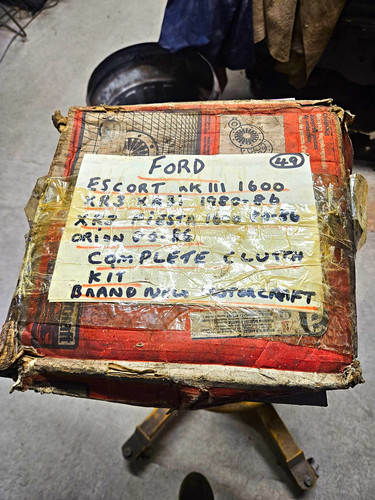 FORD 49
ESCORT MK III 1600
XR3 XR3i 1980-86
XR2 FIESTA 1600
ORION
COMPLETE CLUTCH
KIT
BRAND NEW MOTORCRAFT